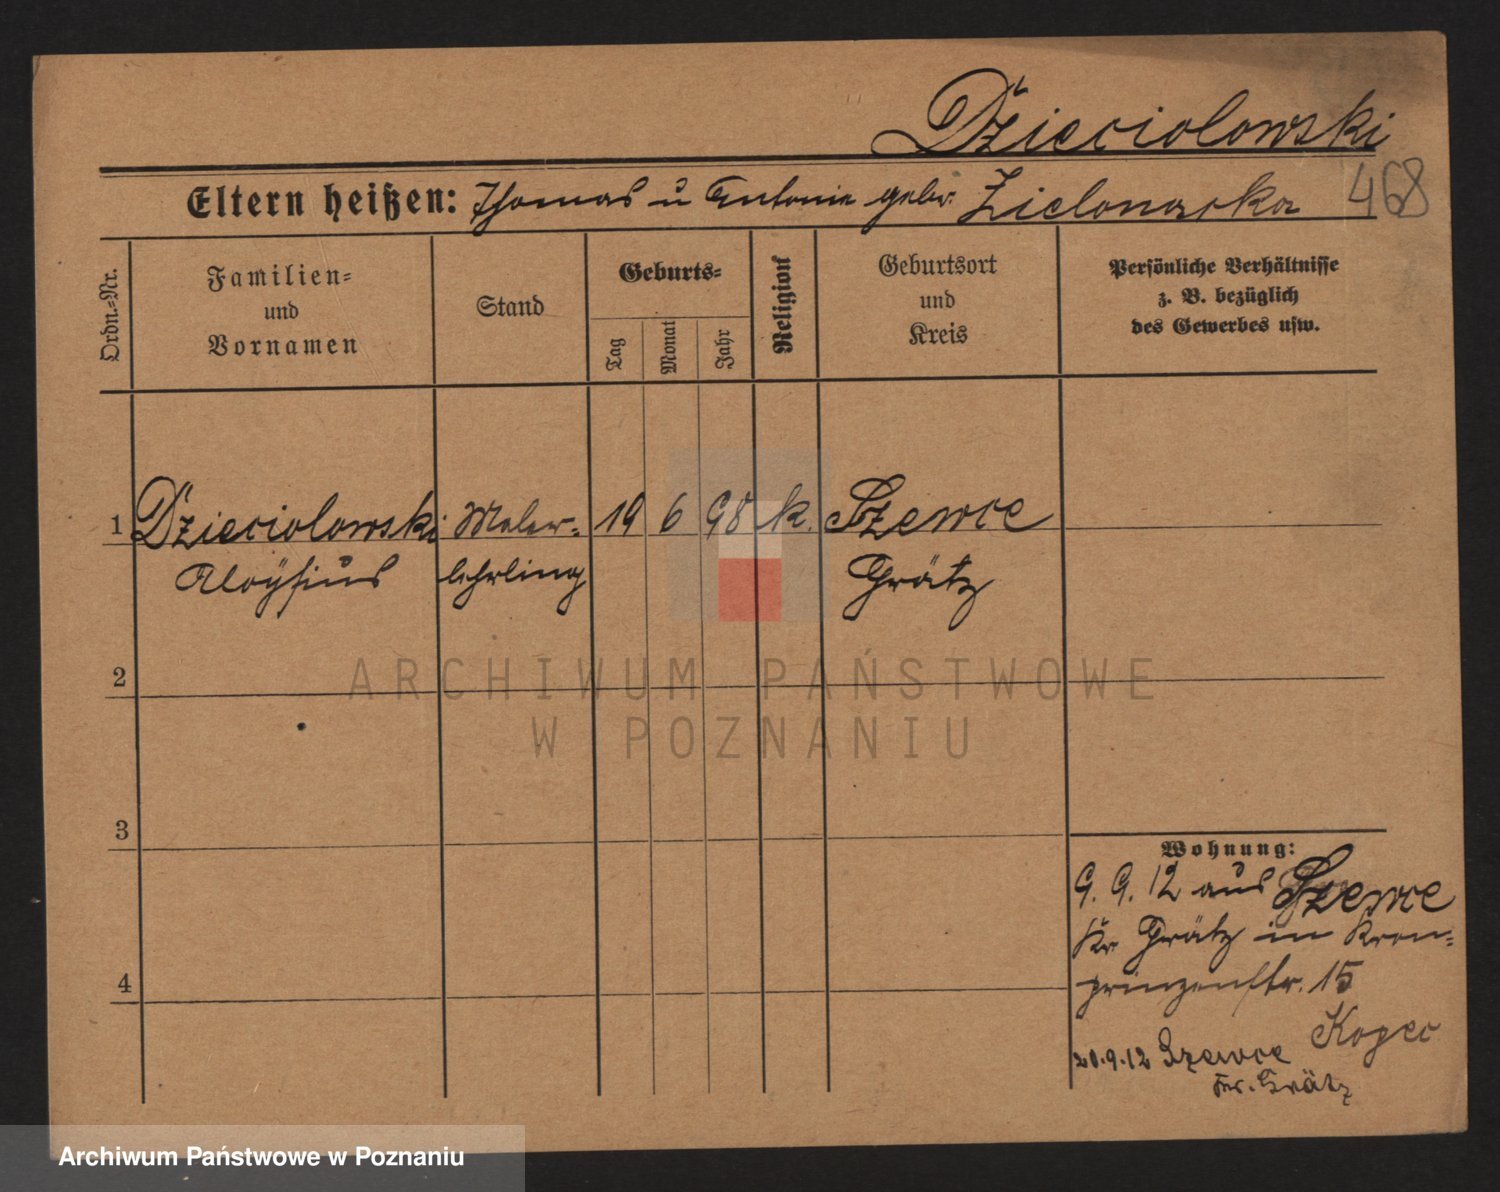 Dzieciolowski
Eltern heißen: Thomas u Antonie geb. Zielonacka 468
Ordn.=Nr.
Familien=
und
Vornamen
Stand
Geburts=
Tag
Monat
Jahr
Religion
Geburtsort
und
Kreis
Persönliche Verhältnisse
z. B. bezüglich
des Gewerbes usw.
1 Dzieciolowski Maler= 19 6 98 k. Szewce
Aloÿsius lehrling Grätz
2
3
4
Wohnung:
9. 9. 12 aus Szewce
Kr Grätz in Kron=
prinzenstr. 15
Kopec
20.9.12 Szewce
Kr. Grätz
ARCHIWUM PAŃSTWOWE
W POZNANIU
Archiwum Państwowe w Poznaniu